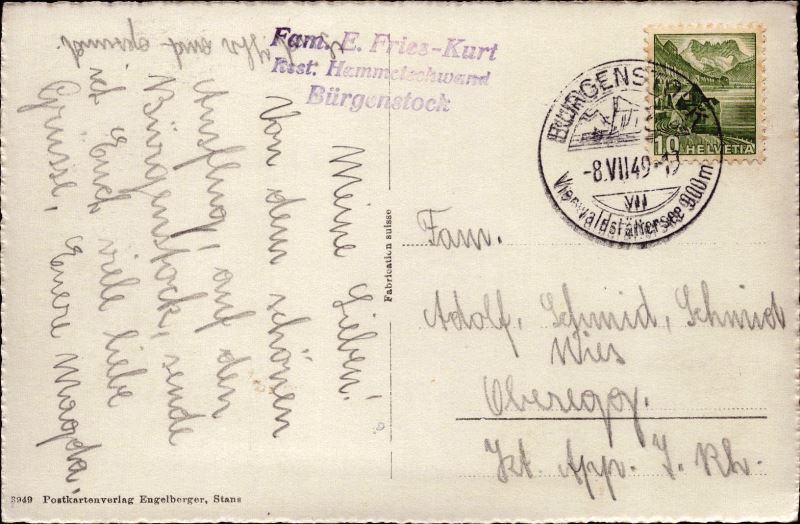 Fam. E. Fries-Kurt
Rest. Hammetschwand
Bürgenstock
BÜRGENSTOCK
-8.VII49-
VII
Vierwaldstättersee 900m
10 HELVETIA
Meine Lieben!
Von dem schönen
Ausflug, auf den
Bürgenstock, sende
ich Euch viele liebe
Grüsse, Euere Magda.
Fabrication suisse
Fam.
Adolf, Schmid, Schmid
Wies
Oberegg.
Kt. App. I. Rh.
3949 Postkartenverlag Engelberger, Stans